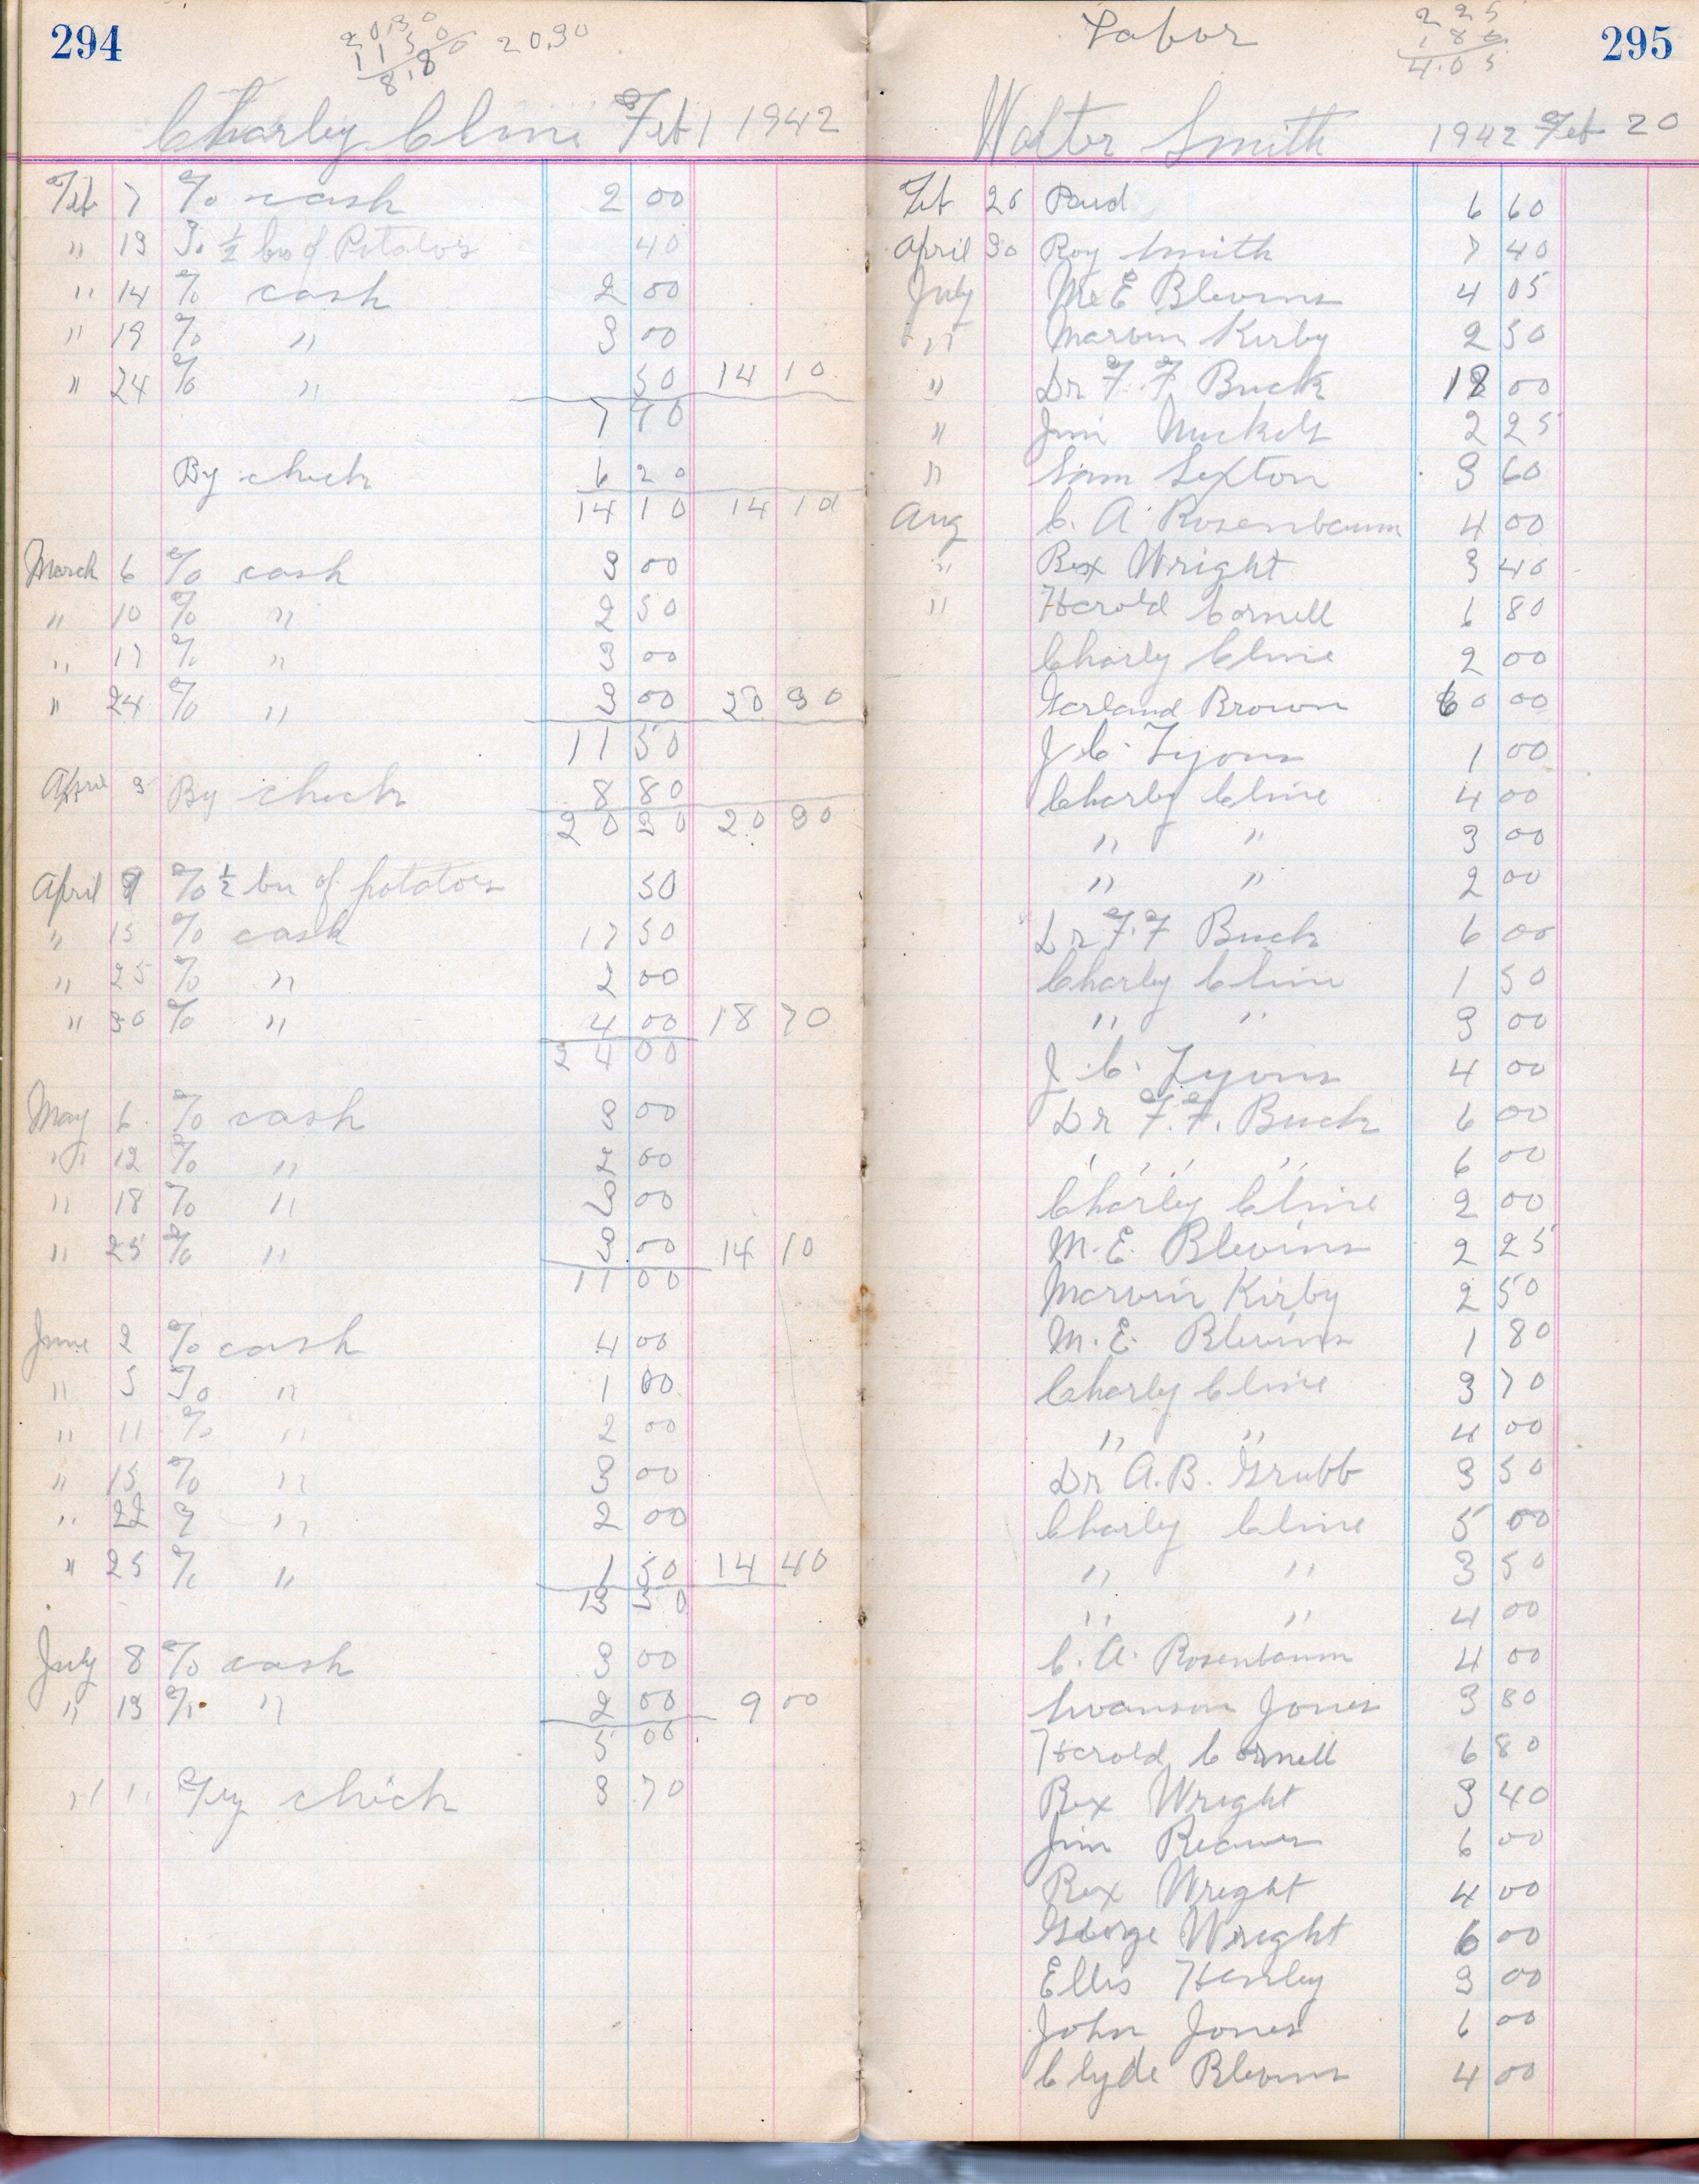 294
20,30 20,30
11 50
8,80
Charley Cline Feb 1 1942
Feb 7 % cash 2 00
" 13 % ½ bu of Potatoes 40
" 14 % cash 2 00
" 19 % " 3 00
" 24 % " 50 14 10
7 90
By check 6 20
14 10 14 10
March 6 % cash 3 00
" 10 % " 2 50
" 17 % " 3 00
" 24 % " 3 00 20 30
11 50
April 3 By check 8 80
20 30 20 30
April 9 % ½ bu of potatoes 50
" 15 % cash 17 50
" 25 % " 2 00
" 30 % " 4 00 18 70
24 00
May 6 % cash 3 00
" 12 % " 2 00
" 18 % " 3 00
" 25 % " 3 00 14 10
11 00
June 2 % cash 4 00
" 5 % " 1 00
" 11 % " 2 00
" 15 % " 3 00
" 22 % " 2 00
" 25 % " 1 50 14 40
13 50
July 8 % cash 3 00
" 13 % " 2 00 9 00
5 00
" 11 By check 3 70
Labor
2 25
1 80
4.05
295
Walter Smith 1942 Feb 20
Feb 26 Paid 6 60
April 30 Roy Smith 7 40
July M E Blevins 4 05
" Marvin Kirby 2 50
" Dr F. F Buck 18 00
" Jim Nuckels 2 25
" Sam Sexton 3 60
Aug C. A Rosenbaum 4 00
" Rex Wright 3 40
" Harold Cornell 6 80
Charly Cline 2 00
Garland Brown 60 00
J C. Lyons 1 00
Charly Cline 4 00
" " 3 00
" " 2 00
Dr F. F Buck 6 00
Charley Cline 1 50
" " 3 00
J. C. Lyons 4 00
Dr F. F. Buck 6 00
" " " " 6 00
Charley Cline 2 00
M. E. Blevins 2 25
Marvin Kirby 2 50
M. E. Blevins 1 80
Charly Cline 3 70
" " 4 00
Dr A. B. Grubb 3 50
Charly Cline 5 00
" " 3 50
" " 4 00
C. A. Rosenbaum 4 00
Swanson Jones 3 80
Harold Cornell 6 80
Rex Wright 3 40
Jim Reaves 6 00
Rex Wright 4 00
George Wright 6 00
Ellis Henley 3 00
John Jones 6 00
Clyde Blevins 4 00